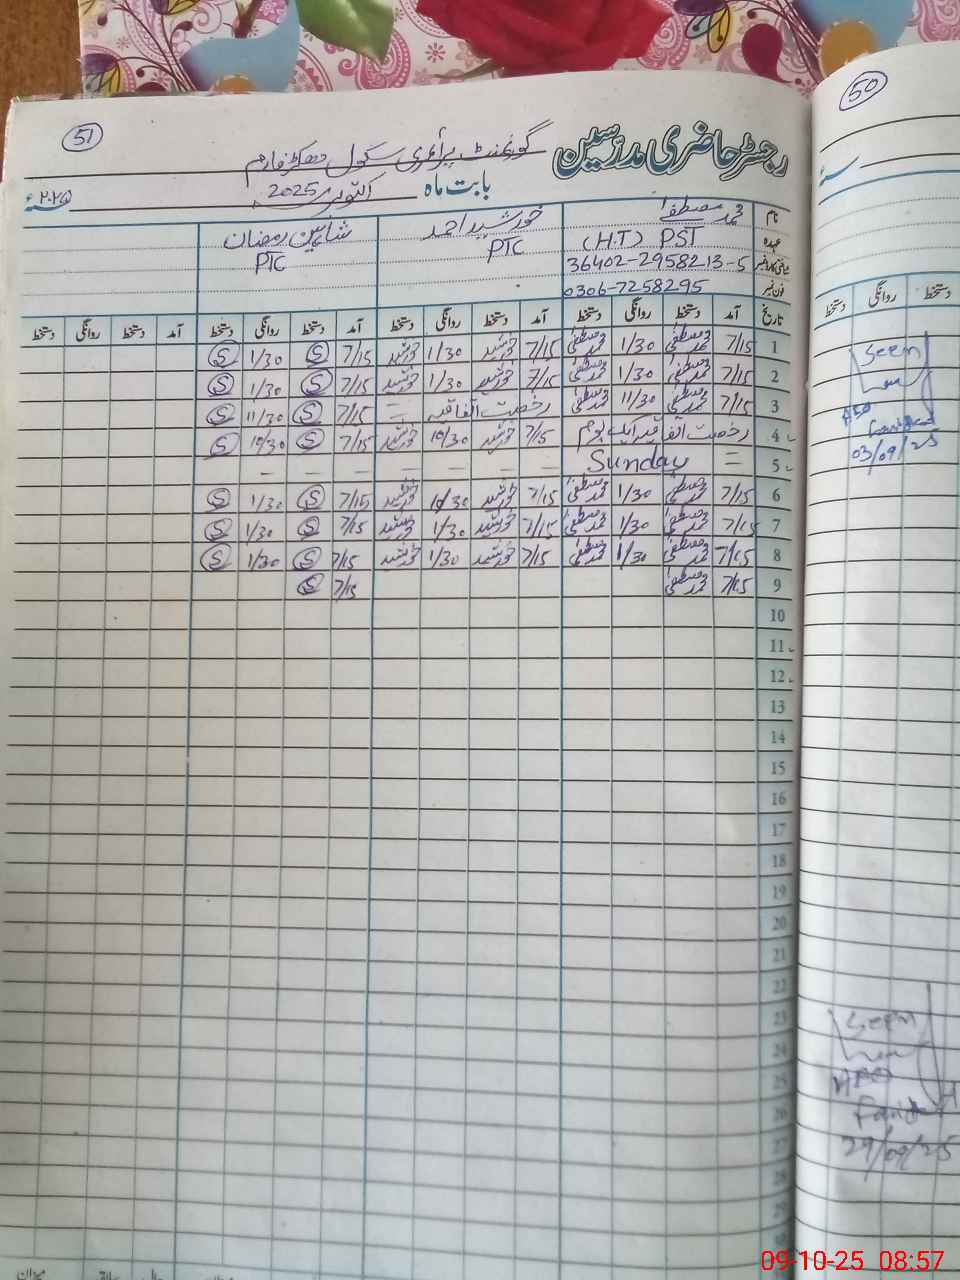 51
رجسٹر حاضری مدرسین
گورنمنٹ پرائمری سکول دھکڑ فارم
بابت ماہ اکتوبر 2025 ۲۰۲۵ء
نام محمد مصطفیٰ خورشید احمد شاہین رمضان
عہدہ PST (H.T) PTC PTC
شناختی کارڈ نمبر 36402-2958213-5
فون نمبر 0306-7258295
تاریخ آمد دستخط روانگی دستخط آمد دستخط روانگی دستخط آمد دستخط روانگی دستخط آمد دستخط روانگی دستخط
1 7/15 محمد مصطفیٰ 1/30 محمد مصطفیٰ 7/15 خورشید 1/30 خورشید 7/15 S 1/30 S
2 7/15 محمد مصطفیٰ 1/30 محمد مصطفیٰ 7/15 خورشید 1/30 خورشید 7/15 S 1/30 S
3 7/15 محمد مصطفیٰ 11/30 محمد مصطفیٰ رخصت اتفاقیہ = 7/15 S 11/30 S
4 رخصت اتفاقیہ ایک یوم 7/15 خورشید 10/30 خورشید 7/15 S 10/30 S
5 = Sunday – – – – – – – –
6 7/15 محمد مصطفیٰ 1/30 محمد مصطفیٰ 7/15 خورشید 1/30 خورشید 7/15 S 1/30 S
7 7/15 محمد مصطفیٰ 1/30 محمد مصطفیٰ 7/15 خورشید 1/30 خورشید 7/15 S 1/30 S
8 7/15 محمد مصطفیٰ 1/30 محمد مصطفیٰ 7/15 خورشید 1/30 خورشید 7/15 S 1/30 S
9 7/15 محمد مصطفیٰ 7/15 S
10
11
12
13
14
15
16
17
18
19
20
21
22
23
24
25
26
27
28
29
میزان
50
دستخط روانگی دستخط
Seen
AEO
03/09/25
Seen
AEO
29/09/25
09-10-25 08:57